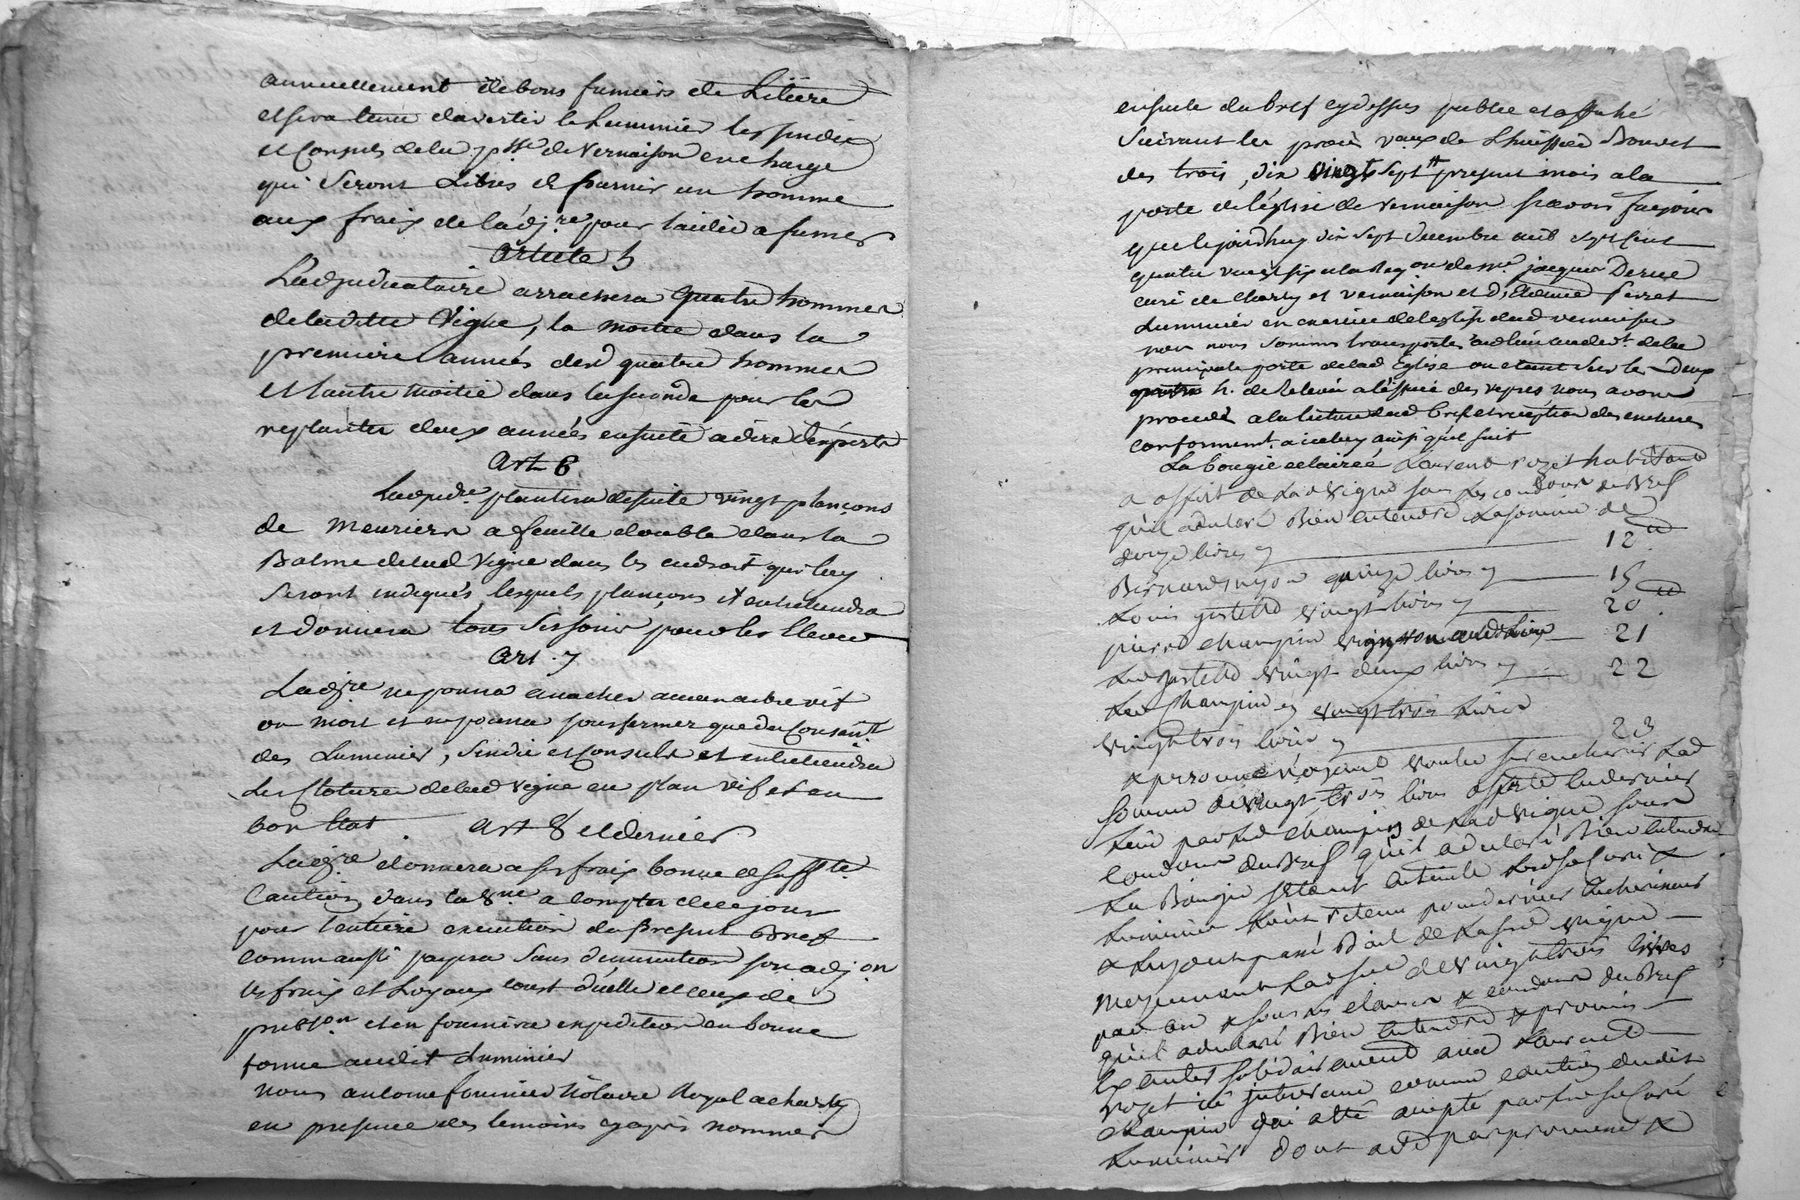 annuellement de bons fumiers de Litiere
et sera tenu d'avertir le Luminier les sindic
et Consuls de la psse de Vernaison en charge
qui Seront Libres de fournir un homme
aux fraix de l'adjre pour laider a fumer
Article 5
L'adjudicataire arrachera quatre hommes
de laditte Vigne, la moitie dans la
premiere années desd quatre hommes
et l'autre moitié dans la seconde pour les
replanter deux années ensuitte a dire d'experts
Art 6
Ladjudre plantera desuite vingt plançons
de meuriers a feuille double dans la
Balme de lad Vigne dans les endroit qui luy
Seront indiqués lesquels plançons il entretiendra
et donnera tous ses soins pour les Elever
Art. 7
Ladjre ne pourra arracher aucun arbre vif
ou mort et ne pourra sousfermer que du Consentt
des Luminier, Sindic et Consuls et entretiendra
Les Clotures de lad vigne en plan vif et en
bon Etat. Art 8 et dernier
Ladjre donnera a ses fraix bonne et suffte
Caution dans la 8ne a compter de ce jour
pour l'entiere execution du present Bref
comm aussi payera sans diminution son adjon
les fraix et Loyaux coust d'icelle et ceux de
et en fournira expedition en bonne
forme audit Luminier
Nous antoine fournier Notaire Royal a charly
en presence des temoins cy apres nommes
ensuite du bref cy dessus publié et affiché
Suivant les procès vaux de L'huissier Bouvet
des trois, dix vingt sept present mois a la
porte de l'eglise de vernaison sçavoir faisons
que cejourdhuy dix sept decembre mil sept cent
quatre vingt six a la Reqon de mre jacques Derue
curé de charly et vernaison et d'Etienne perret
Luminier en exercice de l'eglise dud vernaison
nous nous sommes transportes audlieu audevt de la
principale porte de lad Eglise ou etant sur les deux
h. de Relevée a l'issüe des vepres nous avons
procedé a la lecture dud bref et réception des encheres
conformemt a iceluy ainsi qu'il suit
La bougie eclairée Laurent rozet habitant
a offert de Lad vigne sous Les conditions du Bref
qu'il a declaré Bien entendre La somme de
douze livres cy 12 ll
Bernard cy quinze livres cy 15
Louis vingt livres cy 20 ll
pierre champin vingt un livres 21
Led vingt deux livres cy 22
Led Champin cy vingt trois Livres
vingt trois livres cy 23
& personne n'ayant voulu surencherir Lad
somme de vingt trois livres offerte en dernier
Lieu par Led champin de Lad vigne sous
conditions du Bref qu'il a declaré Bien entendre
La Bougie s'etant eteinte Led sr Curé &
Luminier L'ont retenu pour dernier Encherisseur
& Luy ont passé Bail de La sud vigne
moyennant Lad somme de vingt trois livres
par an & sous les clauses & conditions du Bref
qu'il a declaré Bien entendre & promis
Executer solidairement avec Laurent
rozet icy intervenu comme caution dudit
champin qui a eté accepté par led sr Curé
Luminier dont acte par promesse &